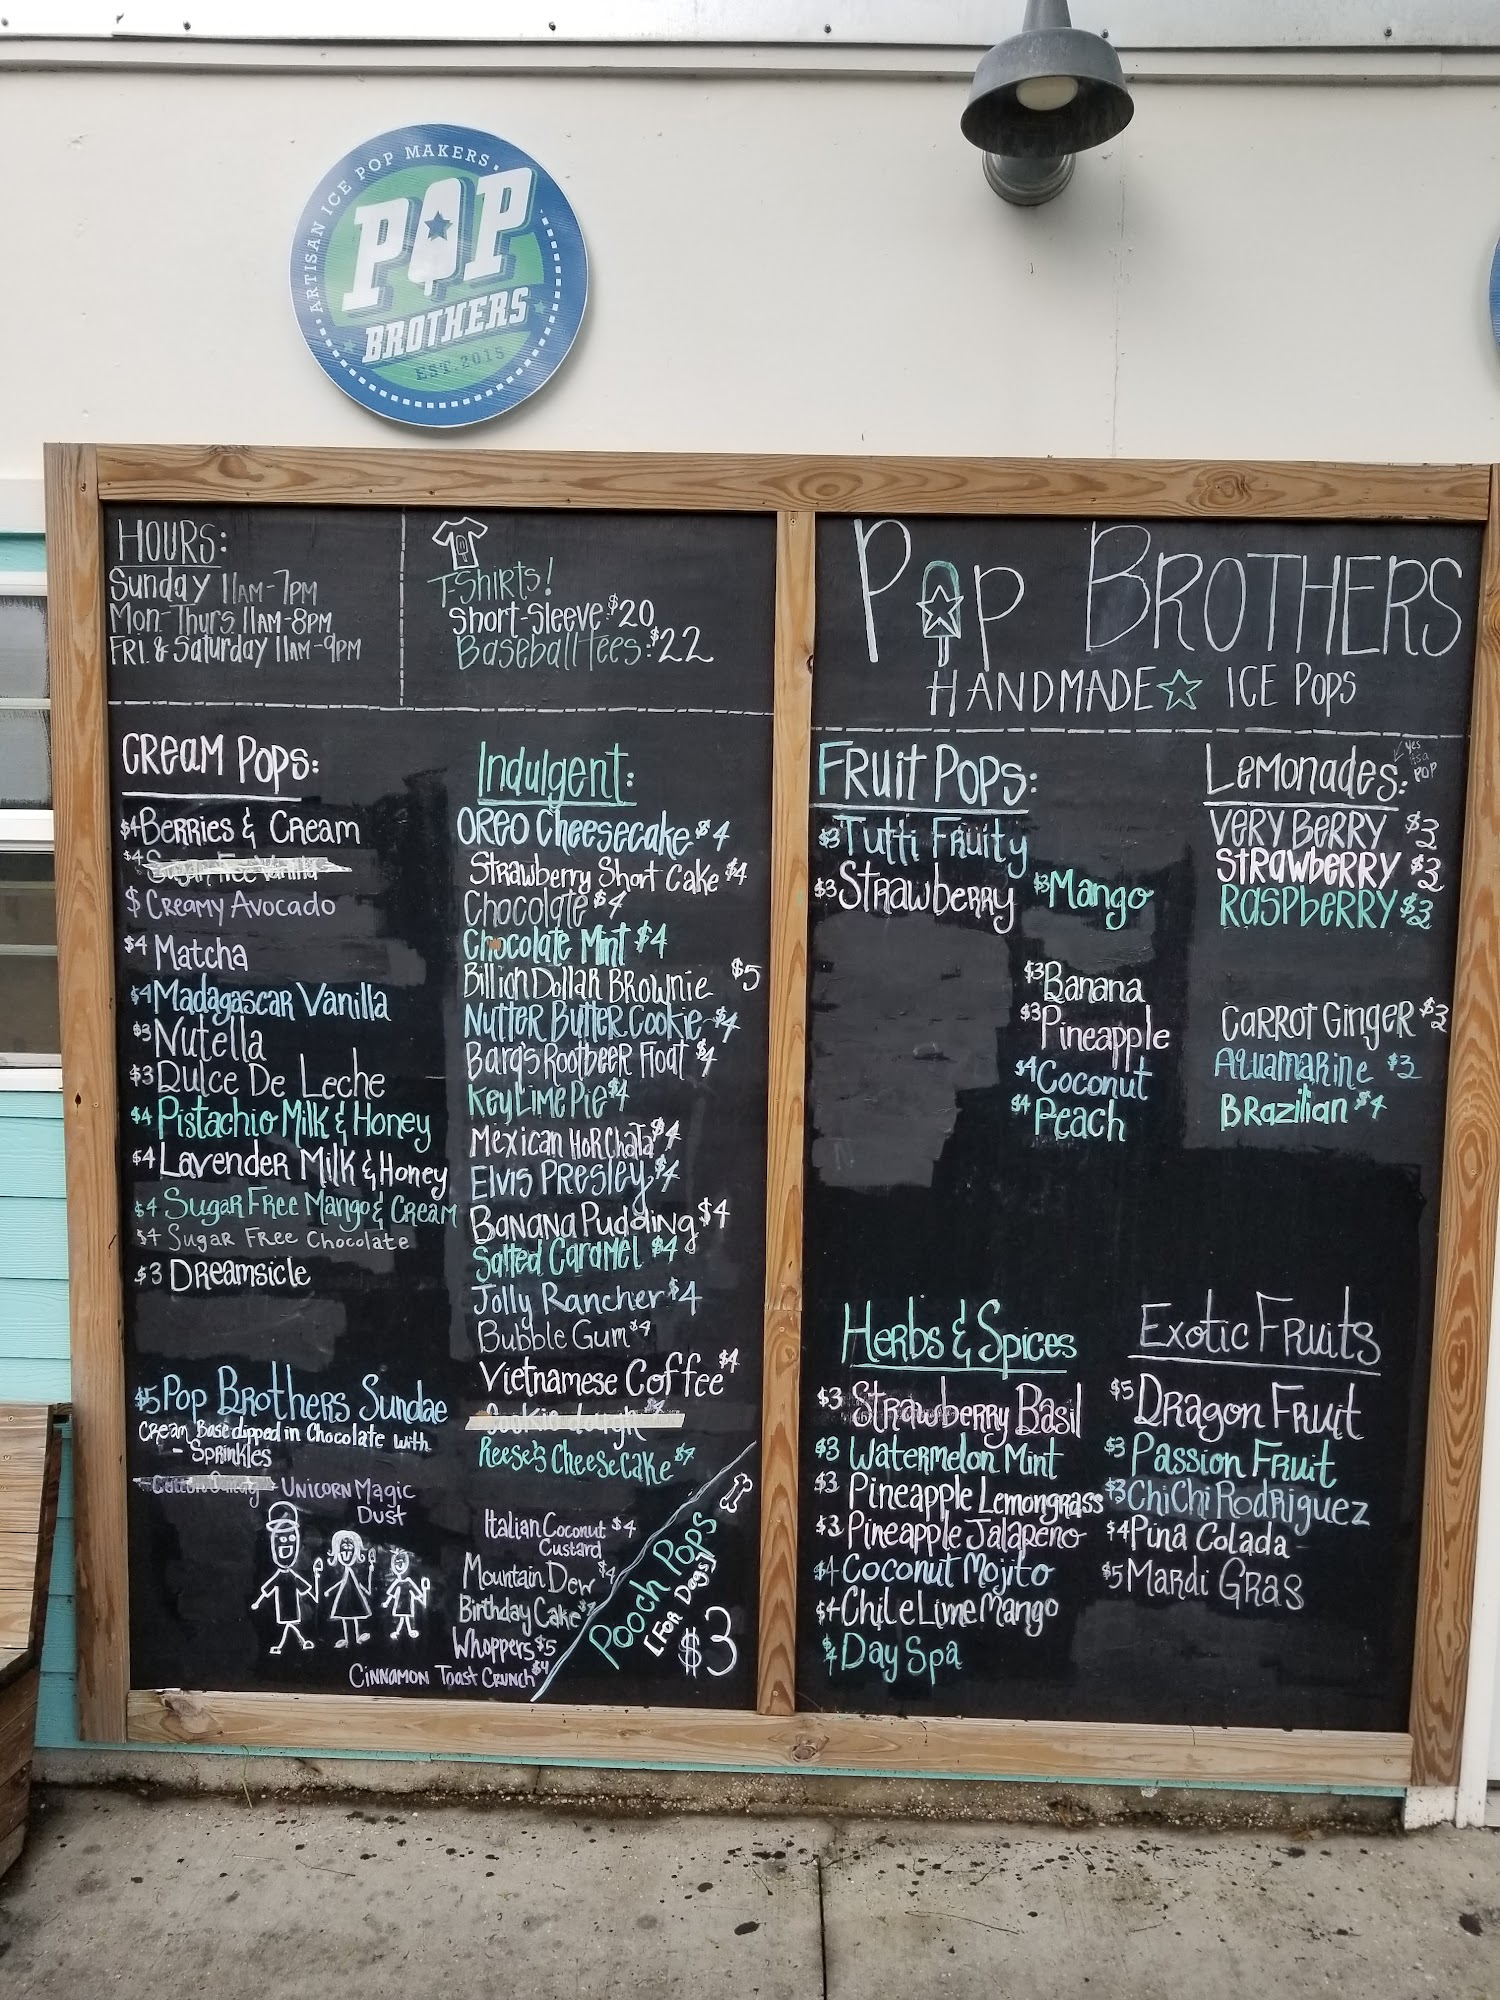 ARTISAN ICE POP MAKERS
POP
BROTHERS
EST. 2015
HOURS:
Sunday 11AM-7PM
Mon-Thurs. 11AM-8PM
FRI. & Saturday 11AM-9PM
T-Shirts!
Short-Sleeve: $20
Baseball Tees: $22
CREAM POPS:
$4 BERRIES & CREAM
$4 Sugar Free Vanilla
$ CREAMY AVOCADO
$4 Matcha
$4 Madagascar Vanilla
$3 Nutella
$3 Dulce De Leche
$4 Pistachio Milk & Honey
$4 Lavender Milk & Honey
$4 Sugar Free Mango & Cream
$4 Sugar Free Chocolate
$3 Dreamsicle
$5 Pop Brothers Sundae
Cream Base dipped in Chocolate with
- Sprinkles
Cotton Candy - UNICORN MAGIC
DUST
Indulgent:
OREO Cheesecake $4
Strawberry Short Cake $4
Chocolate $4
Chocolate Mint $4
Billion Dollar Brownie $5
Nutter Butter Cookie $4
Barq's Rootbeer Float $4
Key Lime Pie $4
Mexican Horchata $4
Elvis Presley $4
Banana Pudding $4
Salted Caramel $4
Jolly Rancher $4
Bubble Gum $4
Vietnamese Coffee $4
Cookie dough
Reese's Cheesecake $4
Italian Coconut $4
Custard
Mountain Dew $4
Birthday Cake $4
Whoppers $5
Cinnamon Toast Crunch $4
Pooch Pops
[For Dogs]
$3
POP BROTHERS
HANDMADE ICE POPS
FRUIT POPS:
$3 Tutti Fruity
$3 Strawberry
$3 Mango
$3 Banana
$3 Pineapple
$4 Coconut
$4 Peach
Lemonades:
yes
its a
POP
VERY BERRY $3
STRAWBERRY $3
RASPBERRY $3
CARROT GINGER $3
AQUAMARINE $3
BRAZILIAN $4
Herbs & Spices
$3 Strawberry Basil
$3 Watermelon Mint
$3 Pineapple Lemongrass
$3 Pineapple Jalapeno
$4 Coconut Mojito
$4 Chile Lime Mango
$4 Day Spa
Exotic Fruits
$5 Dragon Fruit
$3 Passion Fruit
$3 ChiChi Rodriguez
$4 Pina Colada
$5 Mardi Gras